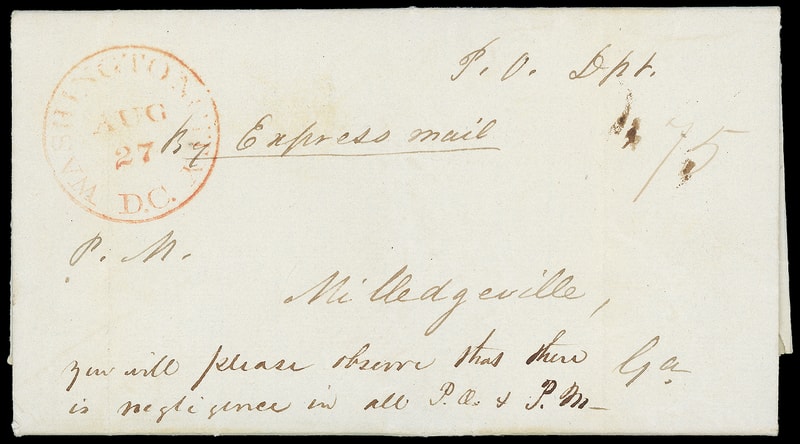 P. O. Dpt.
WASHINGTON CITY
AUG
27
D.C.
By Express mail
75
P. M.
Milledgeville,
Ga
you will please observe that there
is negligence in all P.O. & P.M—